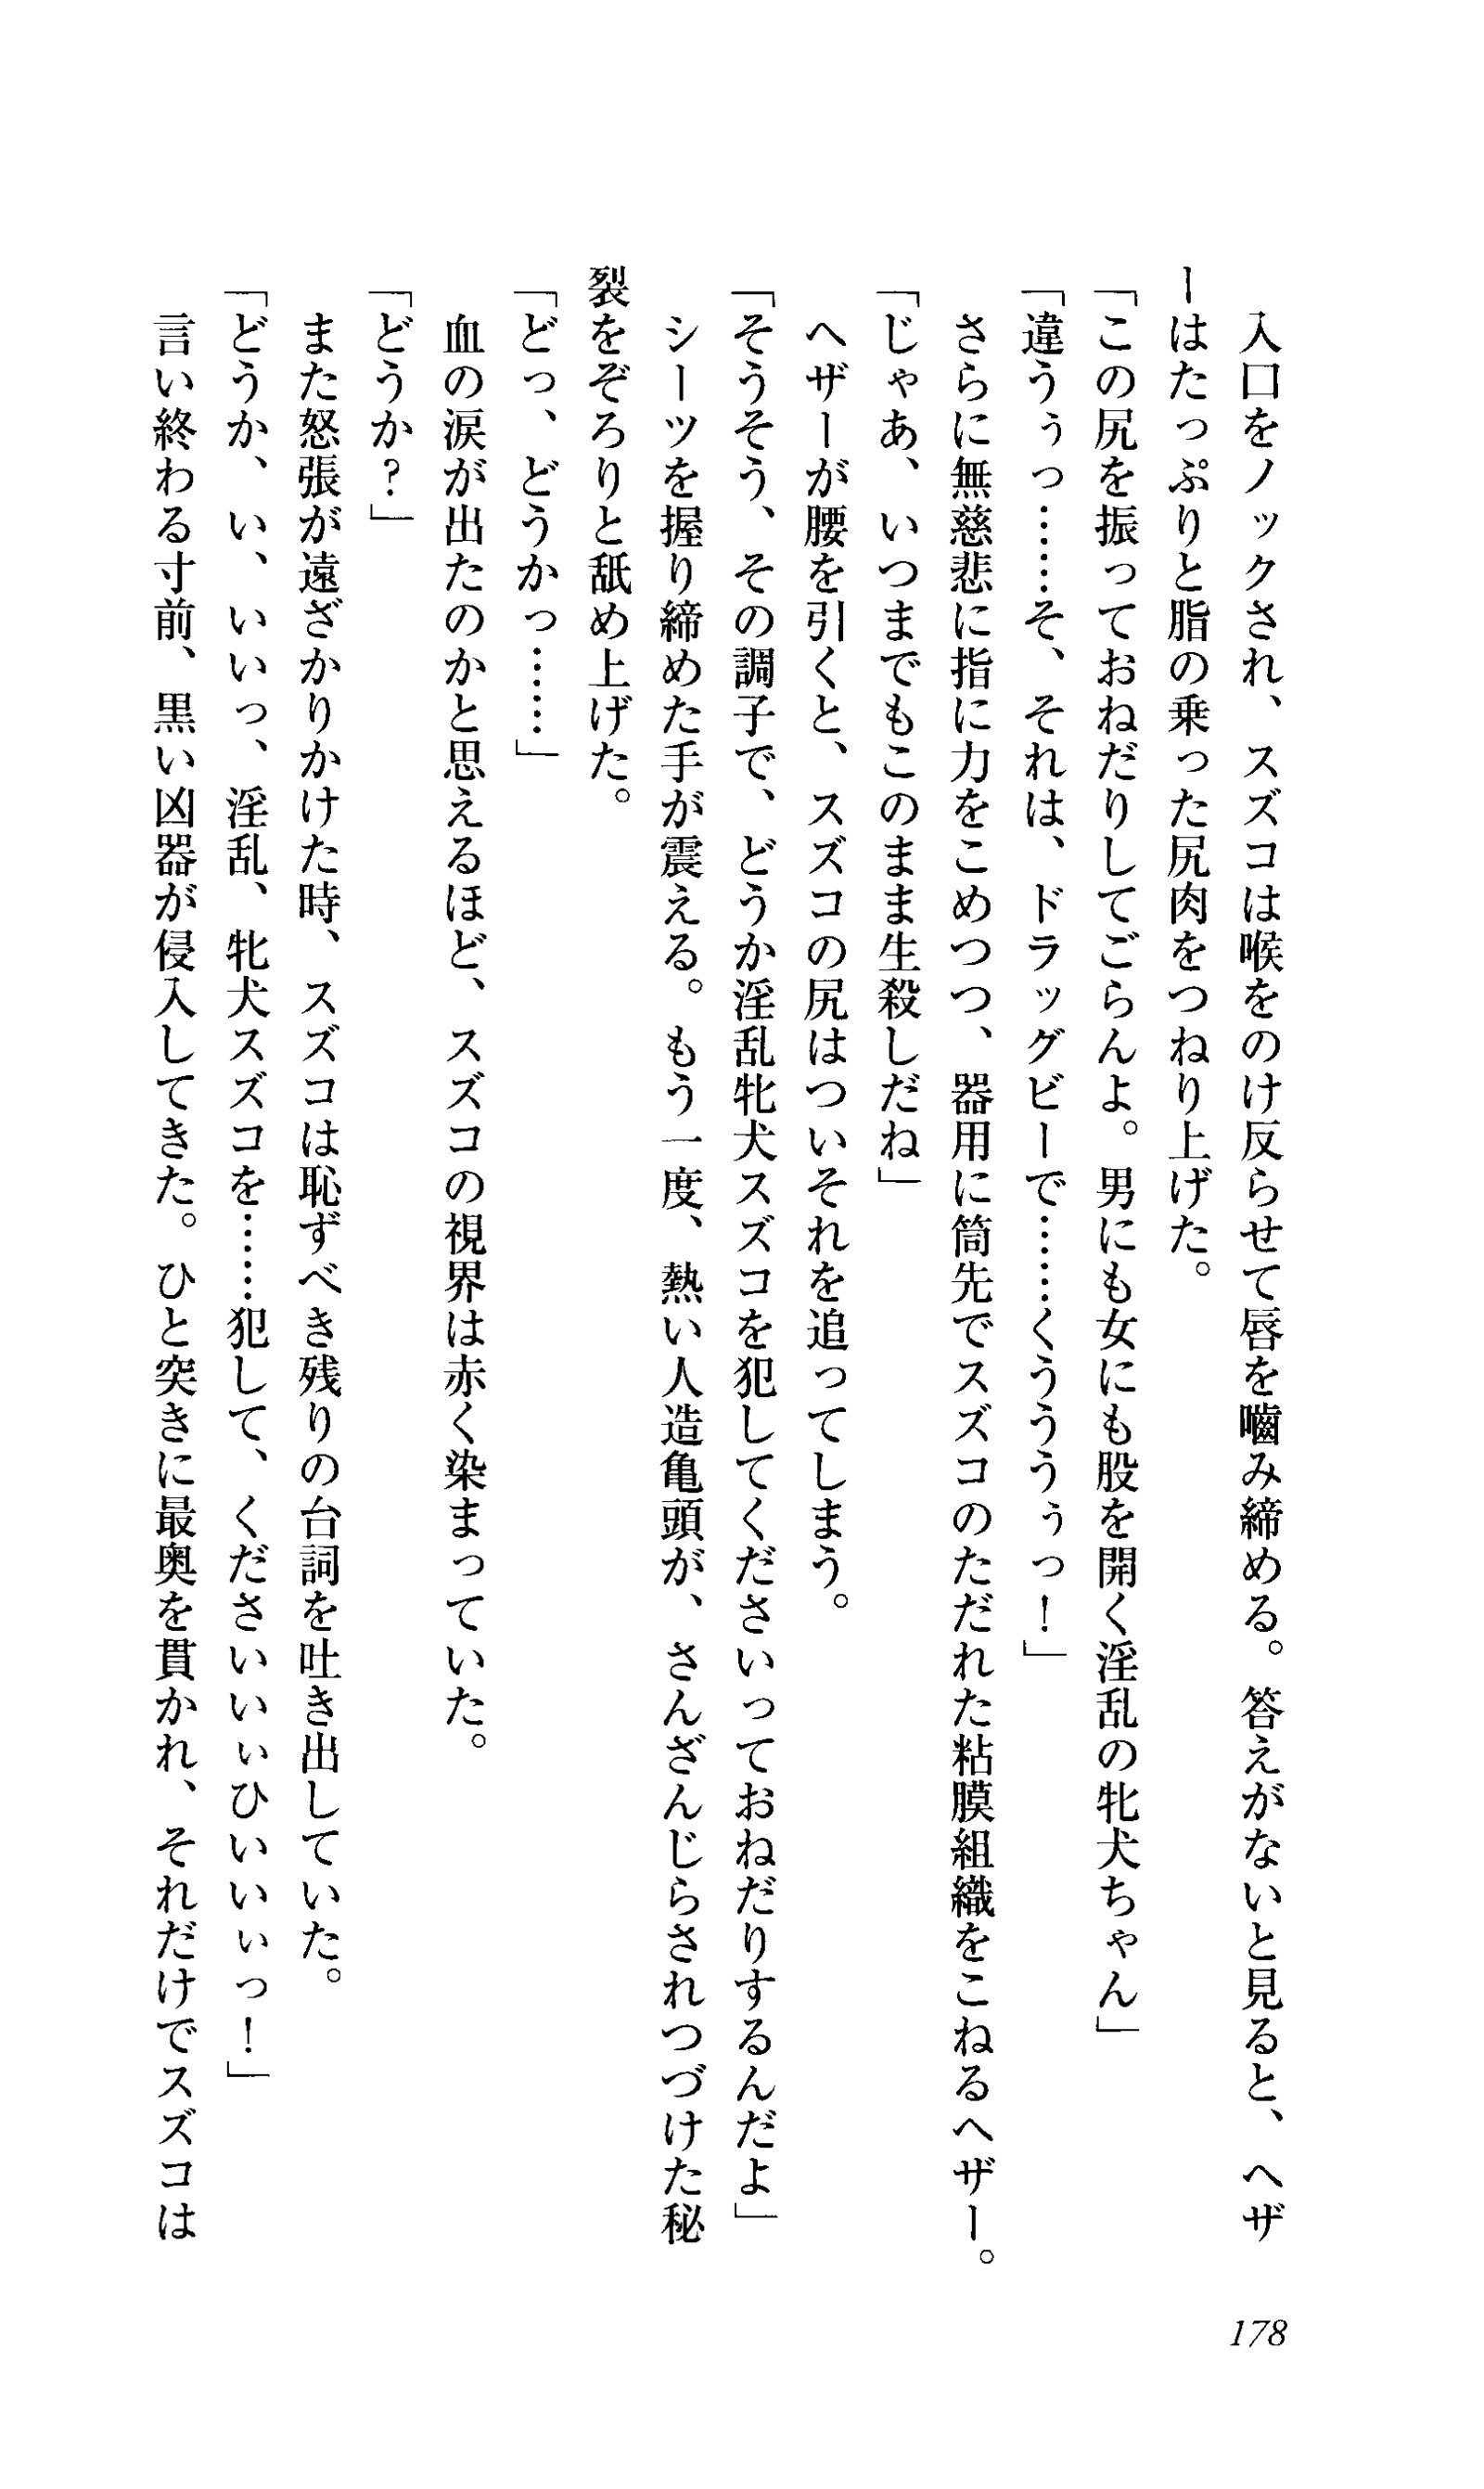 入口をノックされ、スズコは喉をのけ反らせて唇を嚙み締める。答えがないと見ると、ヘザ
ーはたっぷりと脂の乗った尻肉をつねり上げた。
「この尻を振っておねだりしてごらんよ。男にも女にも股を開く淫乱の牝犬ちゃん」
「違うぅっ……そ、それは、ドラッグビーで……くうううぅっ！」
さらに無慈悲に指に力をこめつつ、器用に筒先でスズコのただれた粘膜組織をこねるヘザー。
「じゃあ、いつまでもこのまま生殺しだね」
ヘザーが腰を引くと、スズコの尻はついそれを追ってしまう。
「そうそう、その調子で、どうか淫乱牝犬スズコを犯してくださいっておねだりするんだよ」
シーツを握り締めた手が震える。もう一度、熱い人造亀頭が、さんざんじらされつづけた秘
裂をぞろりと舐め上げた。
「どっ、どうかっ……」
血の涙が出たのかと思えるほど、スズコの視界は赤く染まっていた。
「どうか？」
また怒張が遠ざかりかけた時、スズコは恥ずべき残りの台詞を吐き出していた。
「どうか、い、いいっ、淫乱、牝犬スズコを……犯して、くださいいいぃひいいいぃっ！」
言い終わる寸前、黒い凶器が侵入してきた。ひと突きに最奥を貫かれ、それだけでスズコは
178